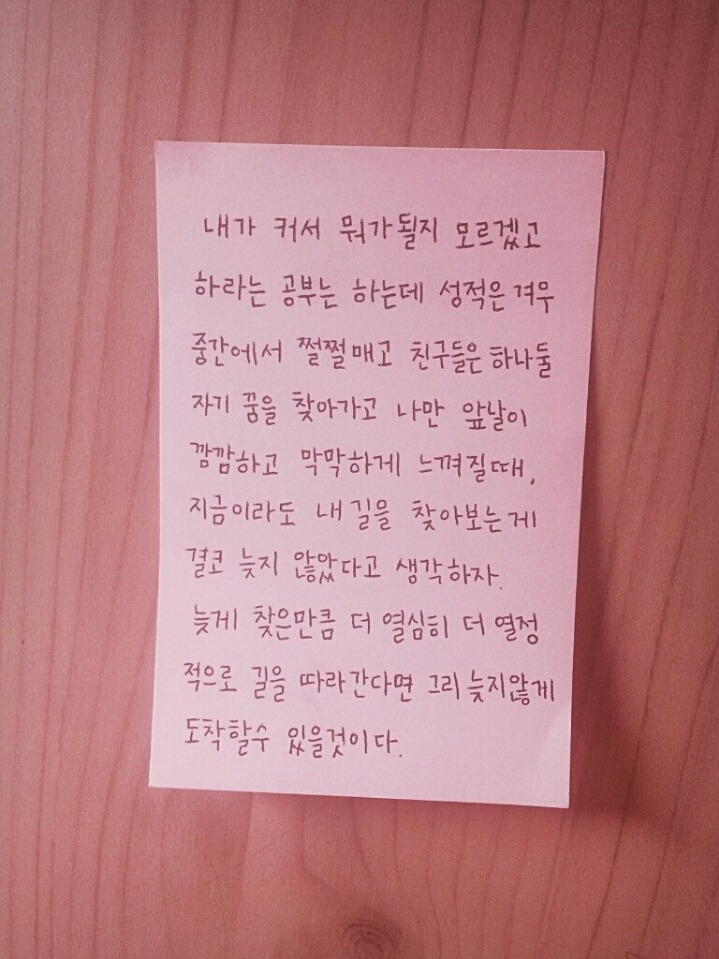 내가 커서 뭐가될지 모르겠고
하라는 공부는 하는데 성적은 겨우
중간에서 쩔쩔매고 친구들은 하나둘
자기 꿈을 찾아가고 나만 앞날이
깜깜하고 막막하게 느껴질때,
지금이라도 내길을 찾아보는게
결코 늦지 않았다고 생각하자.
늦게 찾은만큼 더 열심히 더 열정
적으로 길을 따라간다면 그리 늦지않게
도착할수 있을것이다.